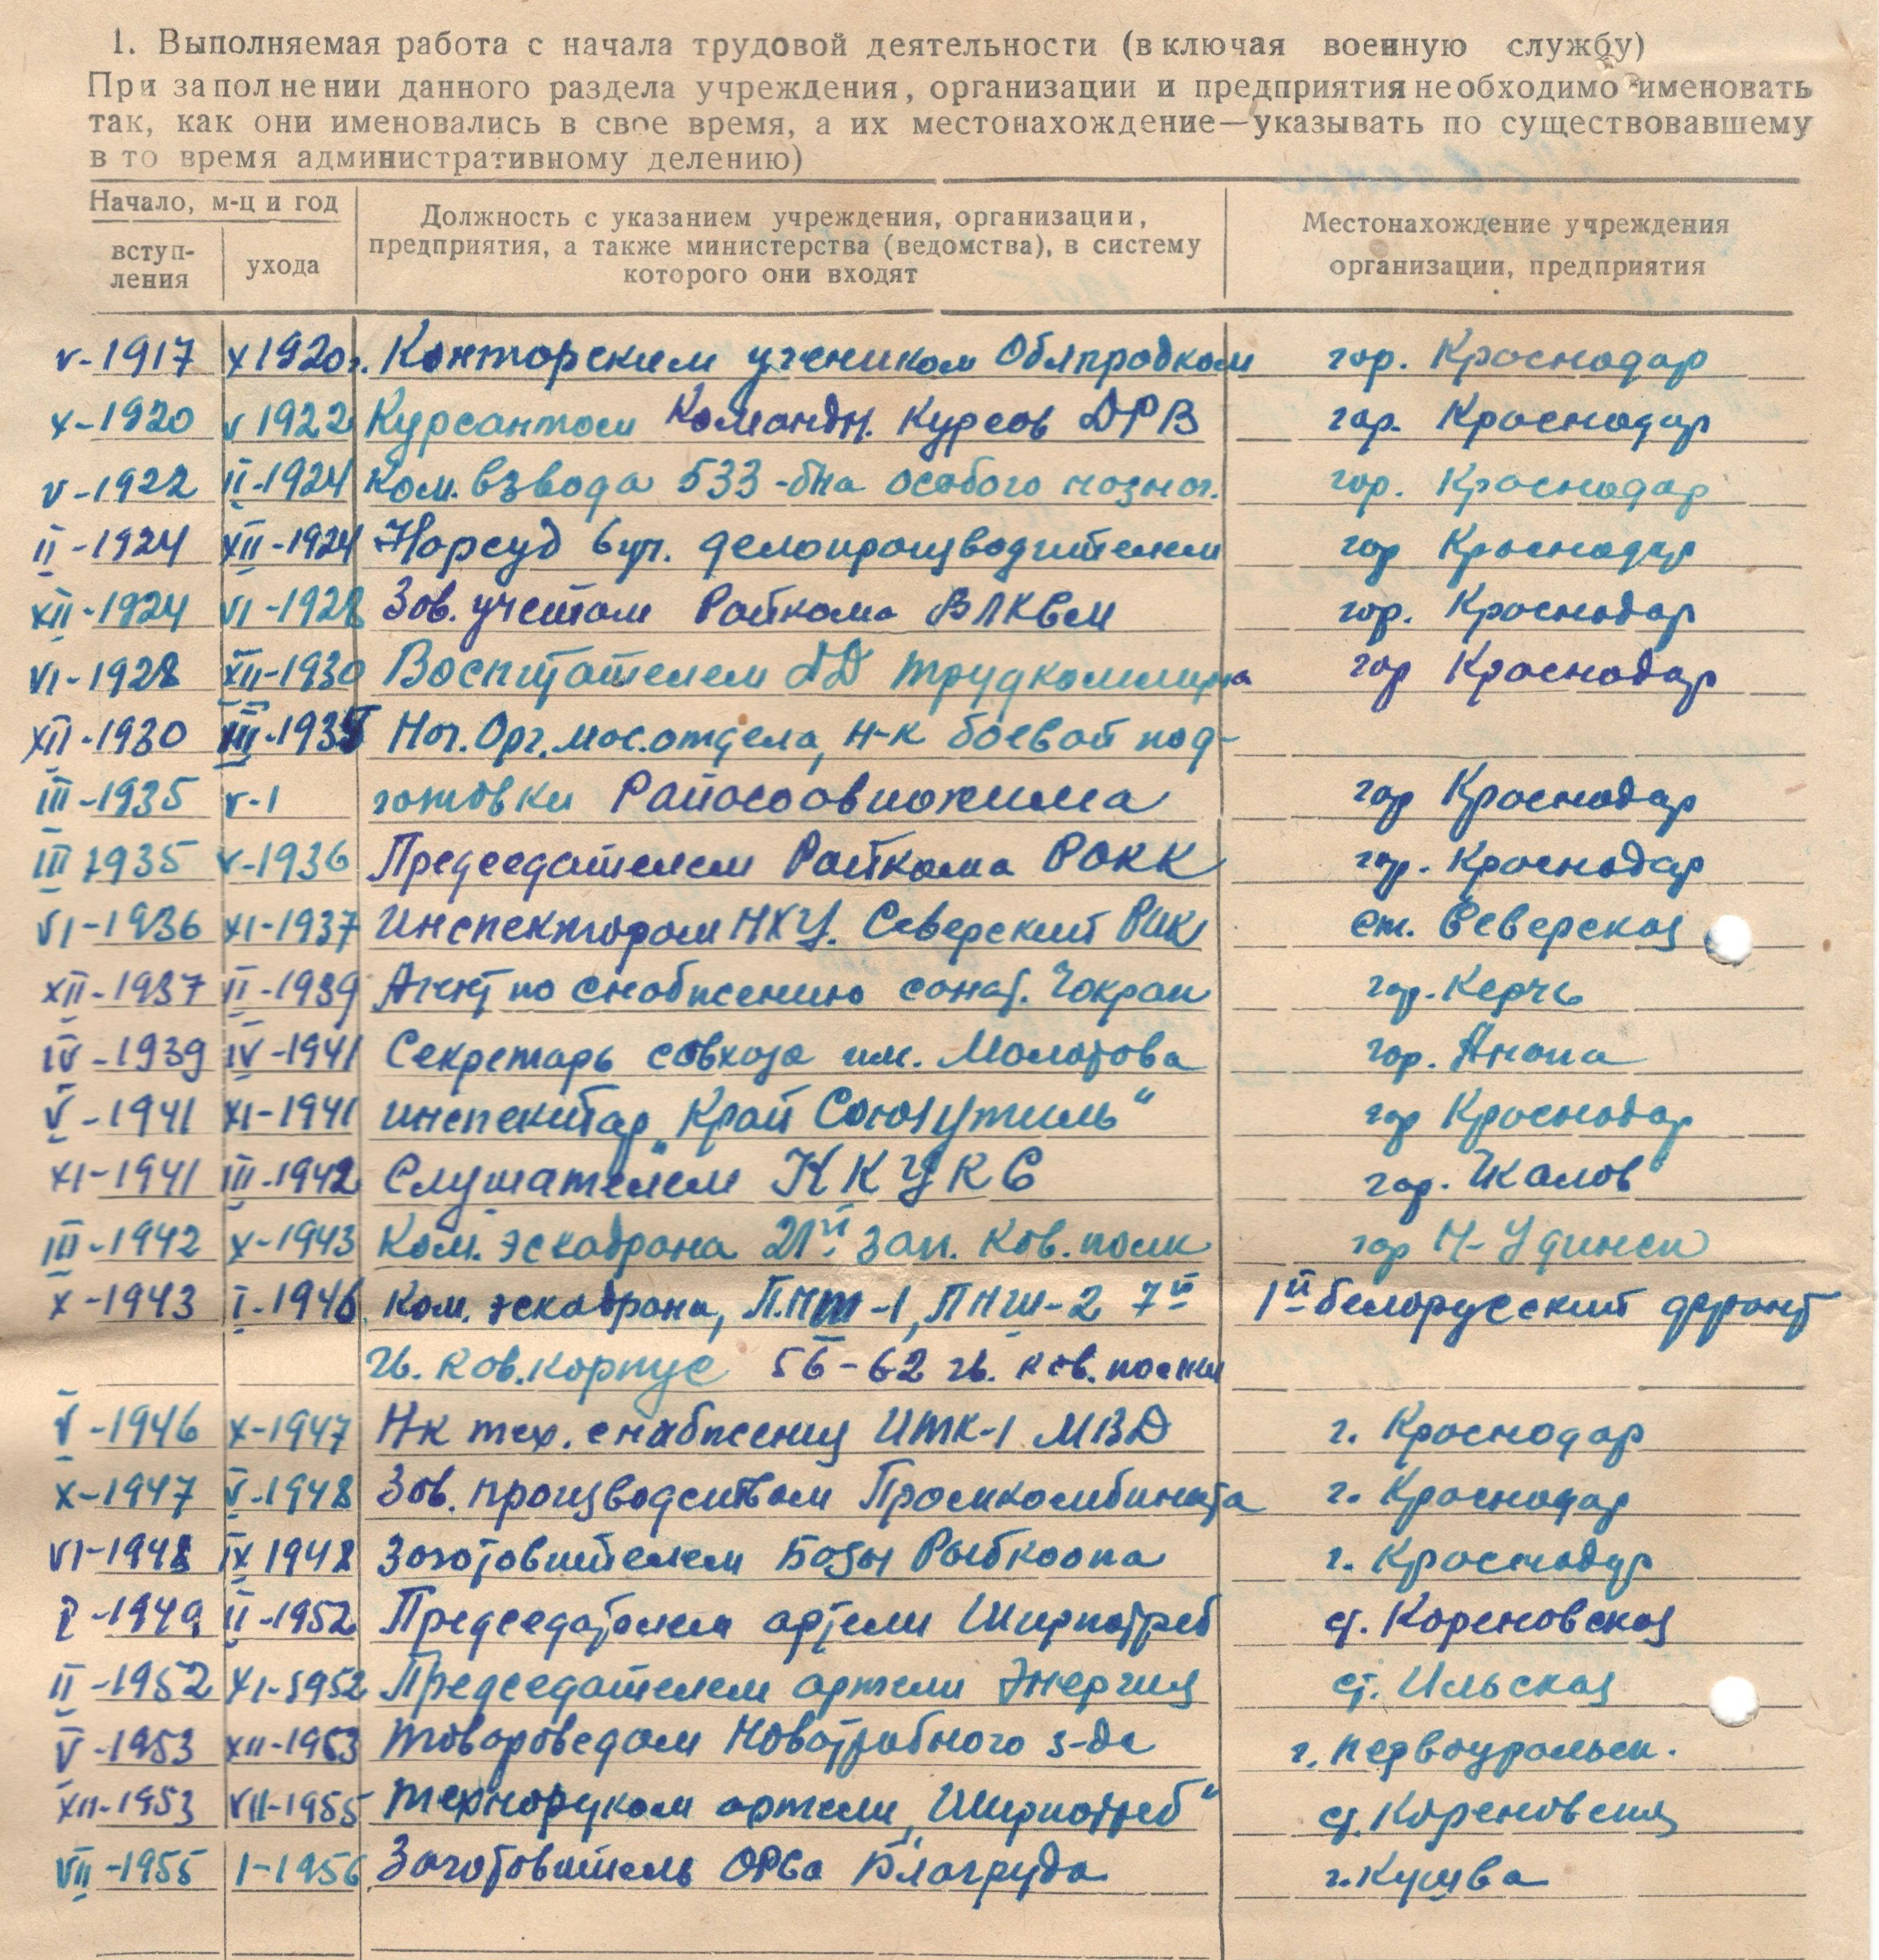 1. Выполняемая работа с начала трудовой деятельности (включая военную службу)
При заполнении данного раздела учреждения, организации и предприятия необходимо именовать
так, как они именовались в свое время, а их местонахождение—указывать по существовавшему
в то время административному делению)
Начало, м-ц и год
вступ-
ления
ухода
Должность с указанием учреждения, организации,
предприятия, а также министерства (ведомства), в систему
которого они входят
Местонахождение учреждения
организации, предприятия
V-1917 X 1920г. Конторским учеником Облпродком гор. Краснодар
X-1920 V 1922 Курсантом Командн. Курсов ДРВ гор. Краснодар
V-1922 II-1924 Ком. взвода 533-бна особого назнач. гор. Краснодар
II-1924 XII-1924 Нарсуд 6 уч. делопроизводителем гор Краснодар
XII-1924 VI-1928 Зав. учетом Райкома ВЛКСМ гор. Краснодар
VI-1928 XII-1930 Воспитателем ДД гор Краснодар
XII-1930 III-1935 Нач. Орг. мас. отдела, н-к боевой под-
III-1935 V-1 готовки Райосоавиохима гор Краснодар
III 1935 V-1936 Председателем Райкома РОКК гор. Краснодар
VI-1936 XI-1937 Инспектором НХУ. Северский РИК ст. Северская
XII-1937 II-1939 Агент по снабжению санат. Чокрак гор. Керчь
IV-1939 IV-1941 Секретарь совхоза им. Молотова гор. Анапа
V-1941 XI-1941 инспектар „Край Союзутиль“ гор Краснодар
XI-1941 III-1942 Слушателем ККУКС гор. Чкалов
III-1942 X-1943 Ком. эскадрона 21й зап. кав. полк гор Н-Удинск
X-1943 I-1946 Ком. эскадрона, ПНШ-1, ПНШ-2 7й 1й белорусский фронт
гв. кав. корпус 56-62 гв. кав. полки
V-1946 X-1947 Н-к тех. снабжения ИТК-1 МВД г. Краснодар
X-1947 V-1948 Зав. производством Промкомбината г. Краснодар
VI-1948 IX 1948 Заготовителем Базы Рыбкоопа г. Краснодар
I-1949 II-1952 Председателем артели Ширпотреб ст. Кореновская
II-1952 XI-1952 Председателем артели Энергия ст. Ильская
V-1953 XII-1953 Товароведом Новотрубного з-да г. Первоуральск.
XII-1953 VII-1955 Техноруком артели „Ширпотреб“ ст. Кореновская
VII-1955 I-1956 Заготовитель ОРСа Благруда г. Кушва